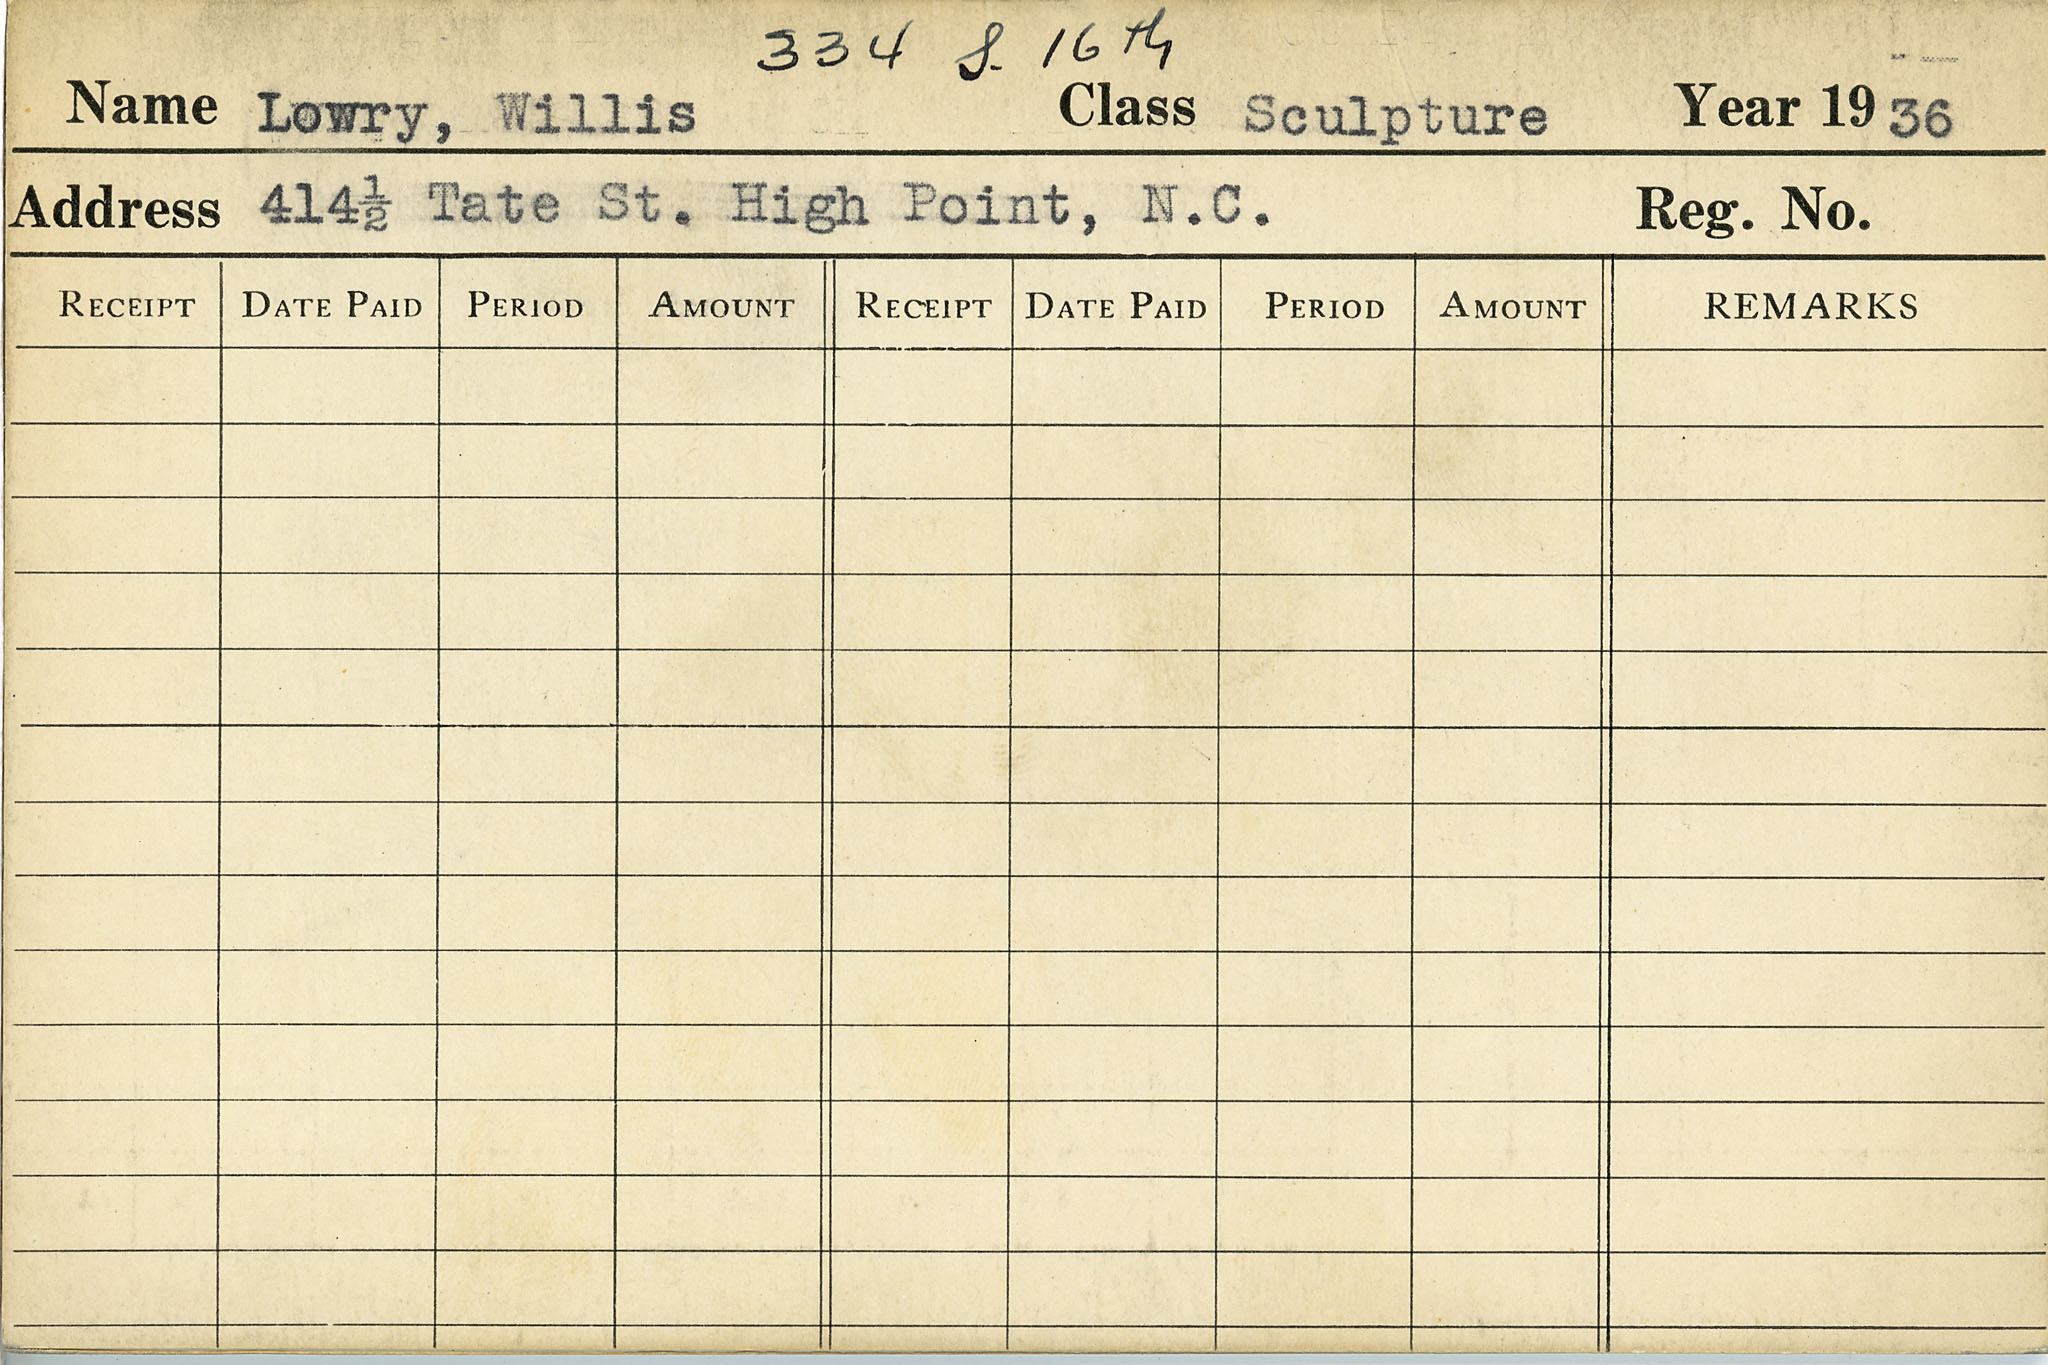 334 S. 16th
Name Lowry, Willis Class Sculpture Year 1936
Address 414½ Tate St. High Point, N.C. Reg. No.
RECEIPT DATE PAID PERIOD AMOUNT RECEIPT DATE PAID PERIOD AMOUNT REMARKS